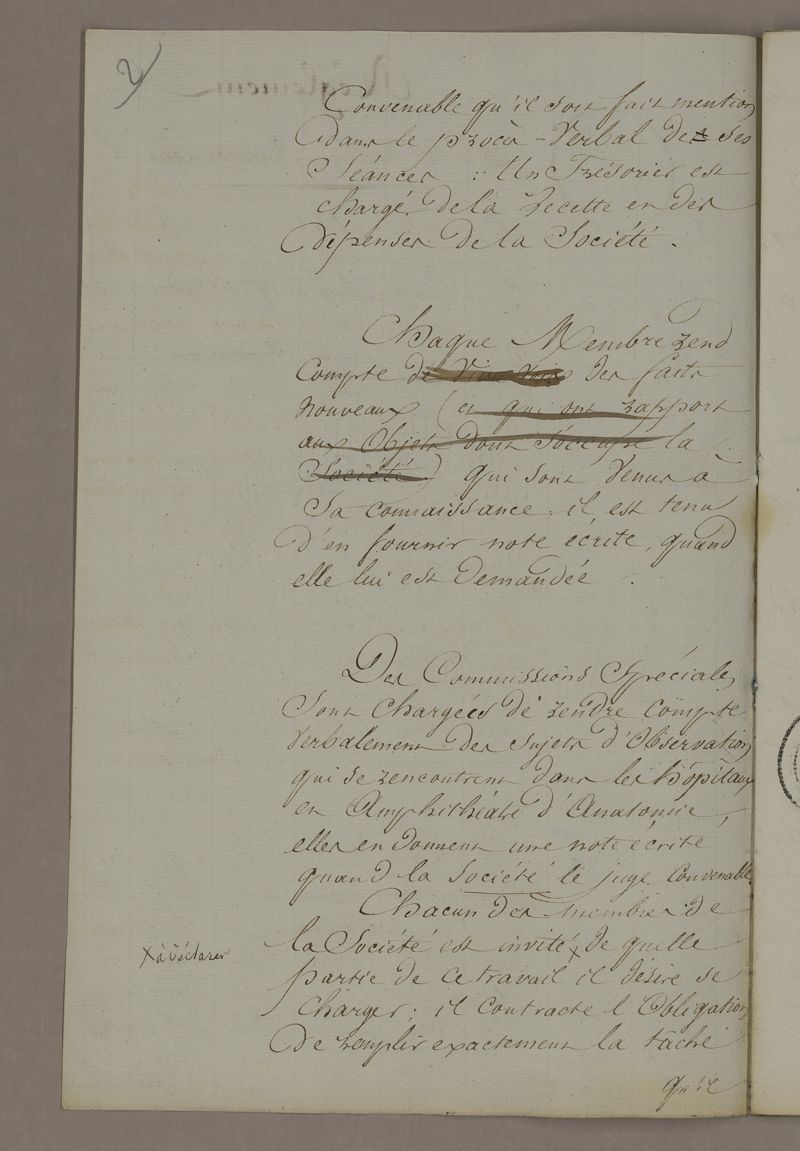 2
Convenable qu'il soit fait mention
dans le procès-Verbal de ses
Séances : Un Trésorier est
chargé de la recette et des
dépenses de la Société.
Chaque Membre rend
Compte des faits
nouveaux (et qui ont rapport
aux Objets dont s'occupe la
Société) qui sont Venus à
Sa connaissance : il est tenu
d'en fournir note écrite, quand
elle lui est demandée.
Des Commissions Spéciales
sont chargées de rendre compte
Verbalement des sujets d'Observation
qui se rencontrent dans les hôpitaux
et Amphithéatre d'Anatomie,
elles en donnent une note écrite
quand la Société le juge Convenable.
Chacun des membres de
x à déclarer
la Société est invité x de quelle
partie de ce travail il désire se
charger ; il contracte l'Obligation
De remplir exactement la tâche
qu'il